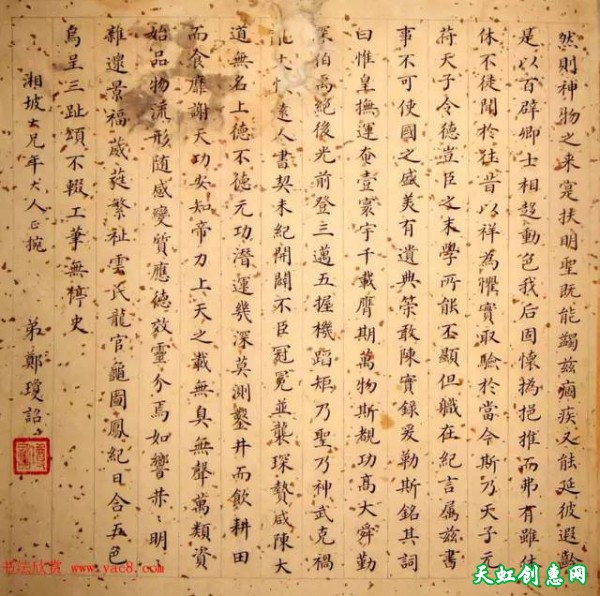 然則神物之来寔扶明聖既能蠲兹痼疾又能延彼遐齡
是以百辟卿士相趍動色我后固懷撝挹推而弗有雖休
休不徒聞於往昔以祥為懼實取驗於當今斯乃天子元
苻天子令德豈臣之末學所能丕顯但軄在紀言屬兹書
事不可使國之盛美有遺典策敢陳實録爰勒斯銘其詞
曰惟皇撫運奄壹寰宇千載膺期萬物斯覩功髙大舜勤
深伯禹絕後光前登三邁五握機蹈矩乃聖乃神武克禍
遠人書契未紀開闢不臣冠冕並襲琛贄咸陳大
道無名上德不德元功潛運幾深莫測鑿井而飲耕田
而食靡謝天功安知帝力上天之載無臭無聲萬類資
始品物流形随感變質應德效靈介焉如響恭〻明
雜遝景福葳蕤繁祉雲氏龍官龜圖鳳紀日含五色
烏呈三趾頌不輟工筆無停史
湘坡大兄年大人正捥
弟鄭瓊詔
书法欣赏 www.yac8.com
天虹创惠网